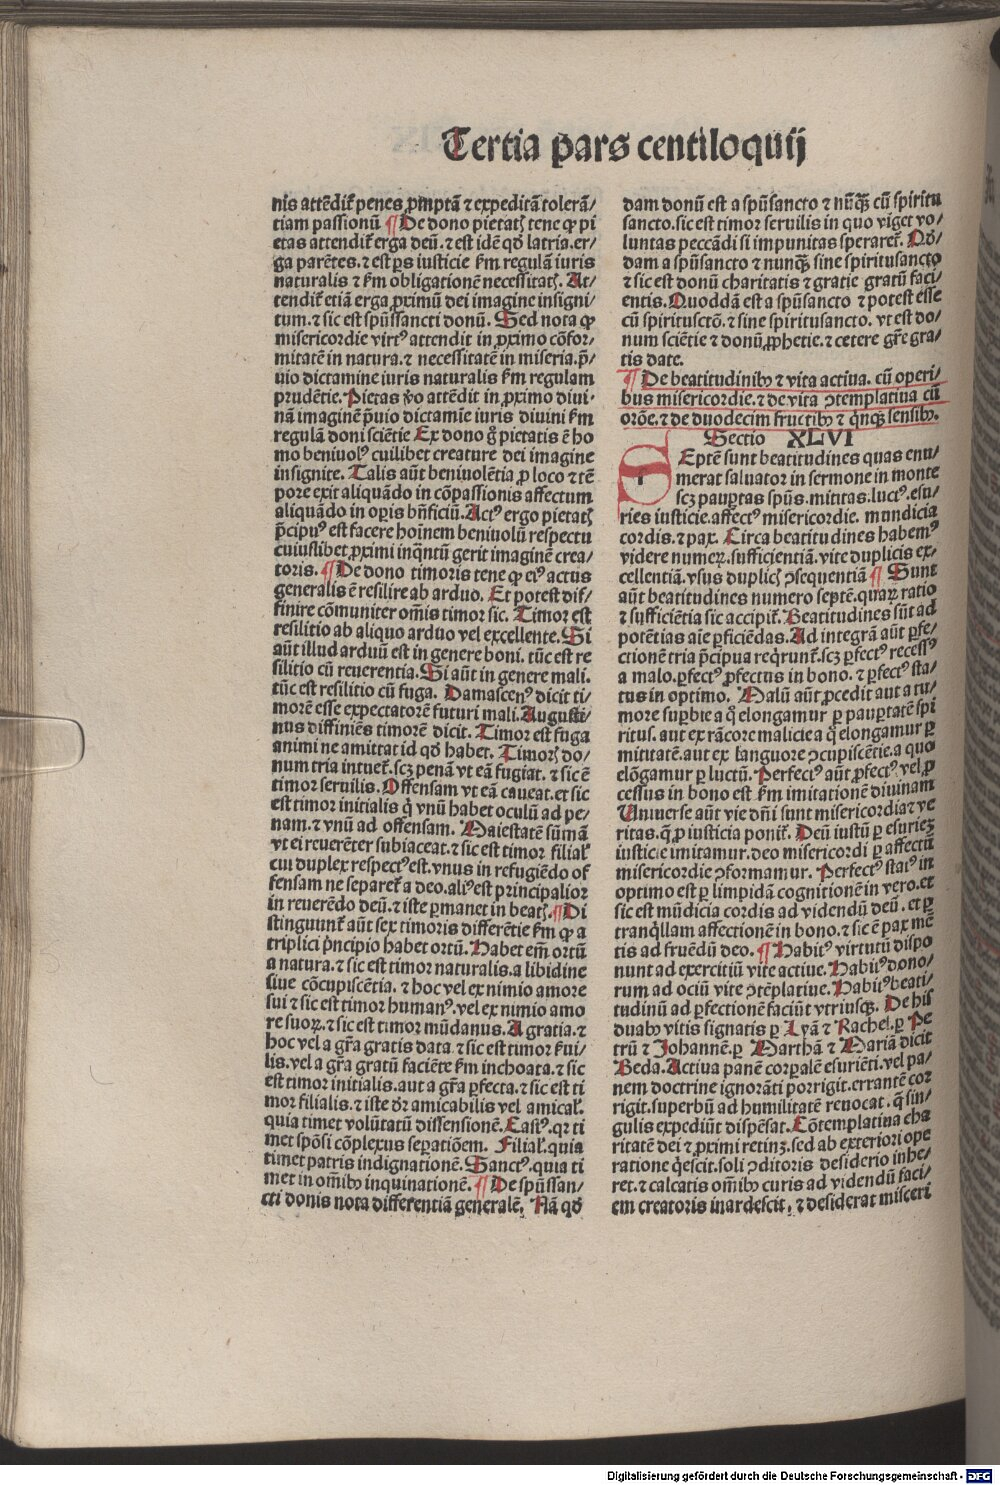 Tertia pars centiloquij
nis attēdit᷑ penes ꝓmptā ⁊ expeditā tolerā/
tiam passionū ¶ De dono pietatꝭ tene ꝙ pi
etas attendit᷑ erga deū. ⁊ est idē qd̓ latria. er/
ga parētes. ⁊ est ꝑs iusticie ẜm regulā iuris
naturalis ⁊ ẜm obligationē necessitatꝭ. At/
tendit᷑ etiā erga ꝓximū dei imagine insigni/
tum. ⁊ sic est spūssancti donū. Sed nota ꝙ
misericordie virtꝰ attendit in ꝓximo cōfor/
mitatē in natura. ⁊ necessitatē in miseria. p̄/
uio dictamine iuris naturalis ẜm regulam
prudētie. Pietas v̓o attēdit in ꝓximo diui/
nā imaginē p̄uio dictamīe iuris diuini ẜm
regulā doni sciētie Ex dono g̊ pietatis ē ho
mo beniuolꝰ cuilibet creature dei imagine
insignite. Talis aūt beniuolētia ꝓ loco ⁊ tē
pore exit aliquādo in cōpassionis affectum
aliquādo in oꝑis bn̄ficiū. Actꝰ ergo pietatꝭ
p̄cipuꝰ est facere hoīnem beniuolū respectu
cuiuslibet ꝓximi inq̄ntū gerit imaginē crea/
toris. ¶ De dono timoris tene ꝙ eiꝰ actus
generalis ē resilire ab arduo. Et potest dif/
finire cōmuniter om̄is timor sic. Timor est
resilitio ab aliquo arduo vel excellente. Si
aūt illud arduū est in genere boni. tūc est re
silitio cū reuerentia. Si aūt in genere mali.
tūc est resilitio cū fuga. Damascenꝰ dicit ti/
morē esse expectatorē futuri mali. Augusti/
nus diffiniēs timorē dicit. Timor est fuga
animi ne amittat id qd̓ habet. Timorꝭ do/
num tria intuet᷑. scꝫ penā vt eā fugiat. ⁊ sic ē
timor seruilis. Offensam vt eā caueat. et sic
est timor initialis q̇ vnū habet oculū ad pe/
nam. ⁊ vnū ad offensam. Maiestatē sūmā
vt ei reuerēter subiaceat. ⁊ sic est timor filialꝭ
cui duplex respectꝰ est. vnus in refugiēdo of
fensam ne separet᷑ a deo. aliꝰ est principalior
in reuerēdo deū. ⁊ iste ꝑmanet in beatꝭ. ¶ Di
stinguunt᷑ aūt sex timoris differētie ẜm ꝙ a
triplici p̄ncipio habet ortū. Habet em̄ ortū
a natura. ⁊ sic est timor naturalis. a libidine
siue cōcupiscētia. ⁊ hoc vel ex nimio amore
sui ⁊ sic est timor humanꝰ. vel ex nimio amo
re suoꝝ. ⁊ sic est timor mūdanus. A gratia. ⁊
hoc vel a gr̄a gratis data ⁊ sic est timor ẜui/
lis. vel a gr̄a gratū faciēte ẜm inchoata. ⁊ sic
est timor initialis. aut a gr̄a ꝑfecta. ⁊ sic est ti
mor filialis. ⁊ iste dr̄ amicabilis vel amicalꝭ.
quia timet volūtatū dissensionē. Castꝰ. qꝛ ti
met spōsi cōplexus seꝑatiōem. Filialꝭ. quia
timet patris indignationē. Sanctꝰ. quia ti
met in om̄ibꝰ inquinationē. ¶ De spūssan/
cti donis nota differentiā generalē. Nā qd̓
dam donū est a spūsancto ⁊ nūq̄ꝫ cū spiritu
sancto. sic est timor seruilis in quo viget vo/
luntas peccādi si impunitas speraret᷑. Qd̓/
dam a spūsancto ⁊ nunq̄ꝫ sine spiritusancto
⁊ sic est donū charitatis ⁊ gratie gratū faci/
entis. Quoddā est a spūsancto ⁊ potest esse
cū spiritusctō. ⁊ sine spiritusancto. vt est do/
num sciētie ⁊ donū ꝓphetie. ⁊ cetere gr̄e gra/
tis date.
¶ De beatitudinibꝰ ⁊ vita actiua. cū operi/
bus misericordie. ⁊ de vita ꝯtemplatiua cū
orōe. ⁊ de duodecim fructibꝰ ⁊ q̇nqꝫ sensibꝰ.
Sectio XLVI
SEptē sunt beatitudines quas enu/
merat saluator in sermone in monte
scꝫ pauꝑtas spūs. mititas. luctꝰ. esu/
ries iusticie. affectꝰ misericordie. mundicia
cordis. ⁊ pax. Circa beatitudines habemꝰ
videre numeꝝ. sufficientiā. vite duplicis ex/
cellentiā. vsus duplicꝭ ꝯsequentiā ¶ Sunt
aūt beatitudines numero septē. quaꝝ ratio
⁊ sufficiētia sic accipit᷑. Beatitudines sūt ad
potētias aīe ꝑficiēdas. Ad integrā aūt ꝑfe/
ctionē tria p̄cipua req̇runt᷑. scꝫ ꝑfectꝰ recessꝰ
a malo. ꝑfectꝰ ꝓfectus in bono. ⁊ ꝑfectꝰ sta/
tus in optimo. Malū aūt ꝓcedit aut a tu/
more suꝑbie a q̊ elongamur ꝑ pauꝑtatē spi
ritus. aut ex rācore malicie a q̊ elongamur ꝑ
mititatē. aut ex languore ꝯcupiscētie. a quo
elōgamur ꝑ luctū. Perfectꝰ aūt ꝓfectꝰ vel ꝓ
cessus in bono est ẜm imitationē diuinam
Uniuerse aūt vie dn̄i sunt misericordia ⁊ ve
ritas. q̄ ꝓ iusticia ponit᷑. Deū iustū ꝑ esuriez
iusticie imitamur. deo misericordi ꝑ affectū
misericordie ꝯformamur. Perfectꝰ statꝰ in
optimo est ꝑ limpidā cognitionē in vero. et
sic est mūdicia cordis ad videndū deū. et ꝑ
tranq̇llam affectionē in bono. ⁊ sic ē pax mē
tis ad fruēdū deo. ¶ Habitꝰ virtutū dispo
nunt ad exercitiū vite actiue. Habitꝰ dono/
rum ad ociū vite ꝯtēplatiue. Habitꝰ beati/
tudinū ad ꝑfectionē faciūt vtriusqꝫ. De his
duabꝰ vitis signatis ꝑ Lyā ⁊ Rachel. ꝑ Pe
trū ⁊ Johannē. ꝑ Marthā ⁊ Mariā dicit
Beda. Actiua panē corꝑalē esuriēti. vel pa/
nem doctrine ignorāti porrigit. errantē cor
rigit. superbū ad humilitatē reuocat. q̄ sin/
gulis expediūt dispēsat. Cōtemplatiua cha
ritatē dei ⁊ ꝓximi retinꝫ. sed ab exteriori ope
ratione q̇escit. soli ꝯditoris desiderio inhe/
ret. ⁊ calcatis om̄ibꝰ curis ad videndū faci/
em creatoris inardescit. ⁊ desiderat misceri
Digitalisierung gefördert durch die Deutsche Forschungsgemeinschaft - DFG